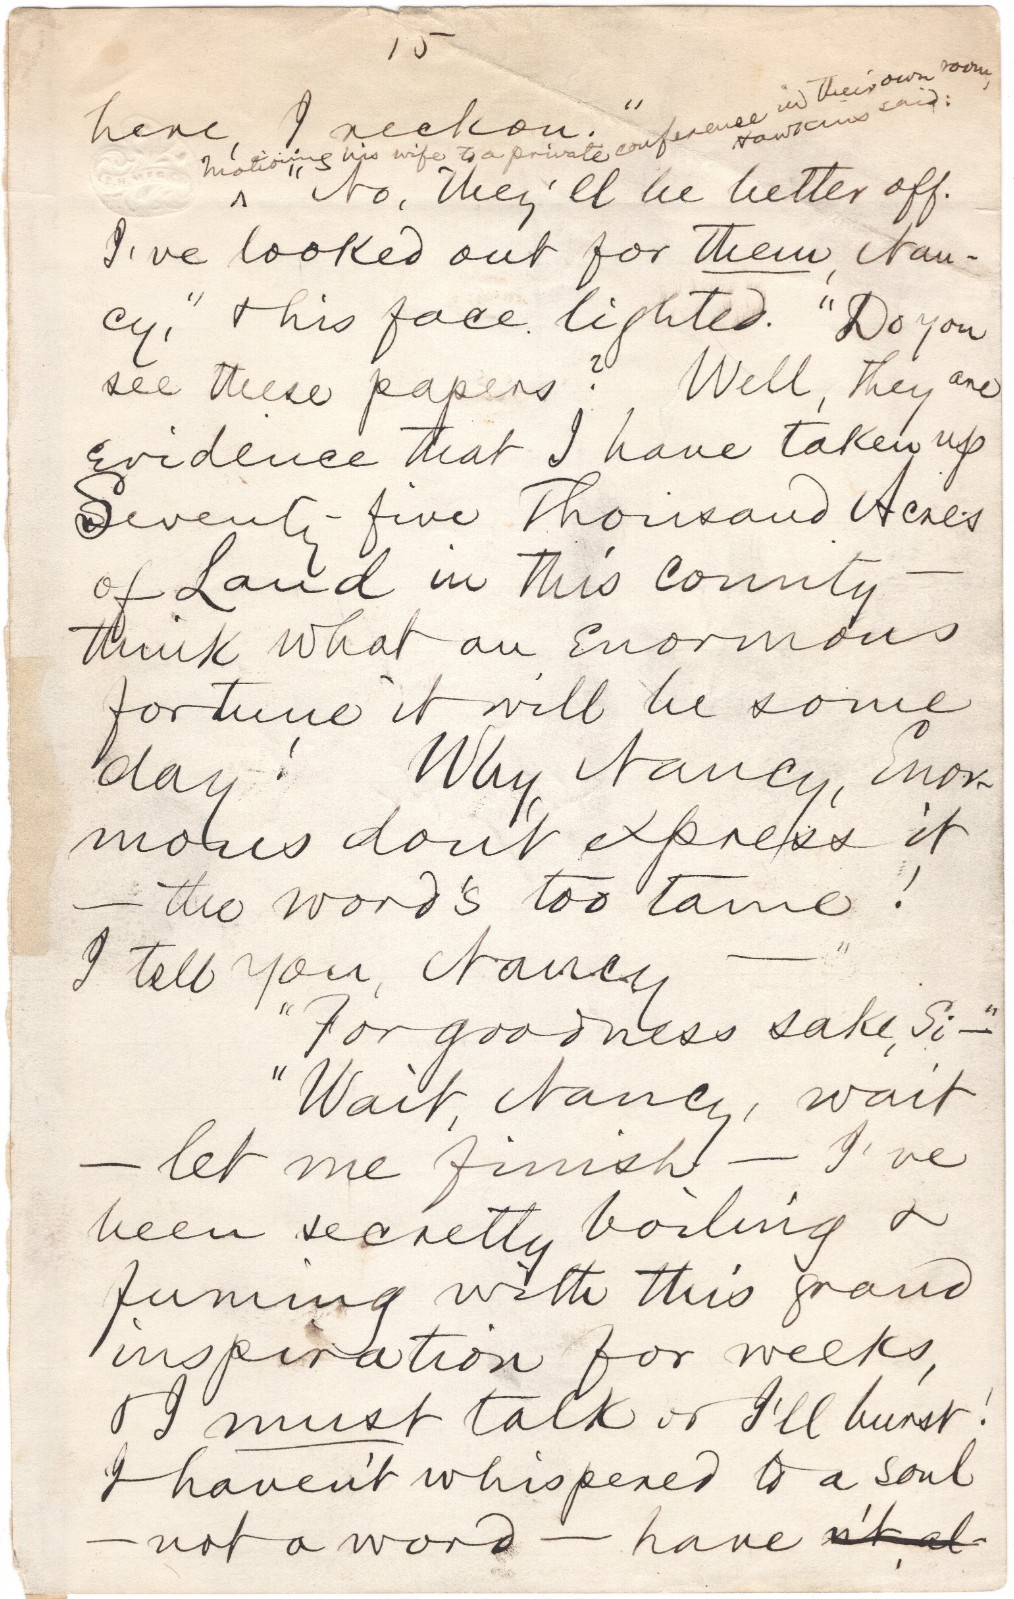 15
here, I reckon."
Motioning his wife to a private conference in their own room,
Hawkins said:
^ "No, they'll be better off.
I've looked out for them, Nan-
cy," & his face lighted. "Do you
see these papers? Well, they are
evidence that I have taken up
Seventy-five Thousand Acres
of Land in this county—
think what an enormous
fortune it will be some
day! Why, Nancy, Enor-
mous don't express it
— the word's too tame!
I tell you, Nancy —"
"For goodness sake, Si—"
"Wait, Nancy, wait
— let me finish — I've
been secretly boiling &
fuming with this grand
inspiration for weeks,
& I must talk or I'll burst!
I haven't whispered to a soul
— not a word — have n't, al-